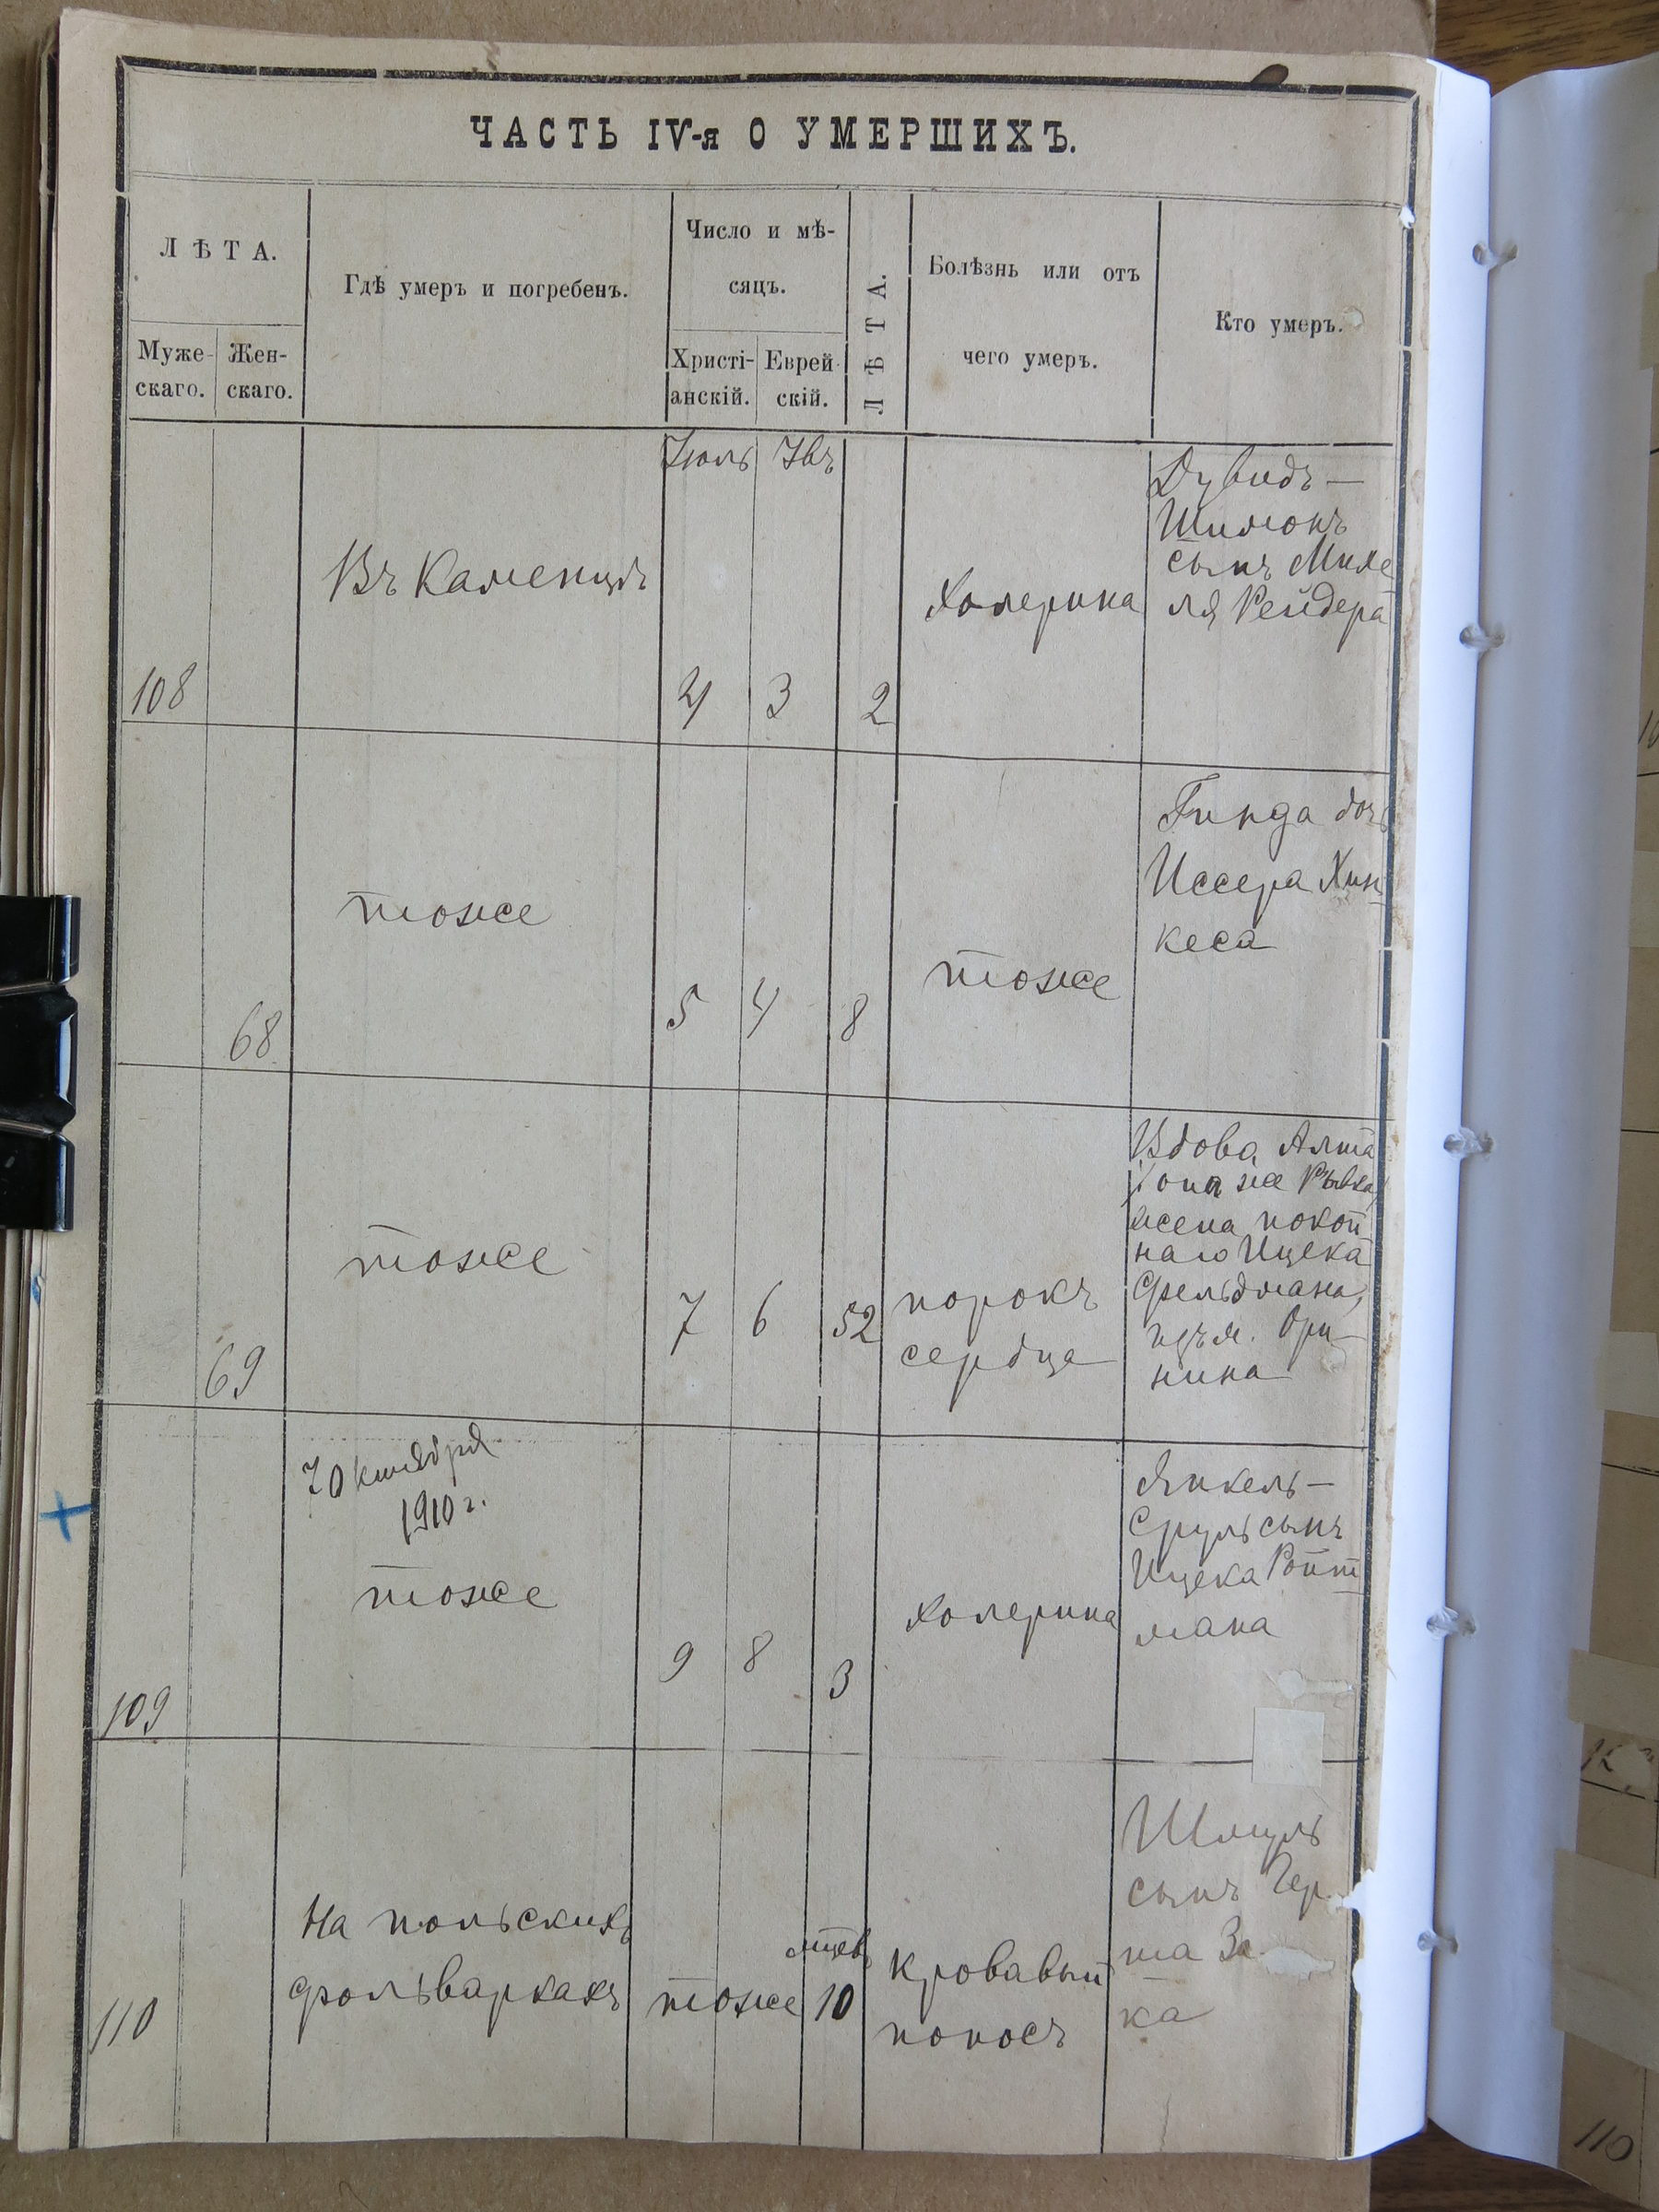 ЧАСТЬ IV-я О УМЕРШИХЪ.
ЛѢТА.
Муже-
скаго.
Жен-
скаго.
Гдѣ умеръ и погребенъ.
Число и мѣ-
сяцъ.
Христі-
анскій.
Еврей-
скій.
ЛѢТА.
Болѣзнь или отъ
чего умеръ.
Кто умеръ.
Въ Каменцѣ
108
Іюль
4
3
2
Холерина
Дувидъ —
Шимонъ
сынъ Михе
ля Рейдера
68
тоже
5
4
8
тоже
Гинда дочь
Иссера Хин
кеса
69
тоже
7
6
52
порокъ
сердца
Вдова Алта
она же Рывка
жена покой
наго Ицека
Фельдмана,
изъ м. Ори-
нина
7 Октября
1910 г.
109
тоже
9
8
3
Холерина
Янкель —
Сруль сынъ
Ицека Ройт
мана
110
На польскихъ
фольваркахъ
тоже
10
кровавый
поносъ
Шмуль
сынъ Гер
ша За
ка
110